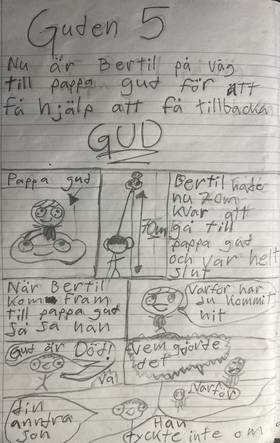 Guden 5
Nu är Bertil på väg
till pappa gud för att
få hjälp att få tillbacka
GUD
Pappa gud
70m
Bertil hade
nu 70m
kvar att
gå till
pappa gud
och var helt
slut
När Bertil
kom fram
till pappa gud
så sa han
Varför har
du kommit
hit
Gud är Död!
Va!
Vem gjorde
det
Varför
din
anndra
son
Han
tyckte inte om